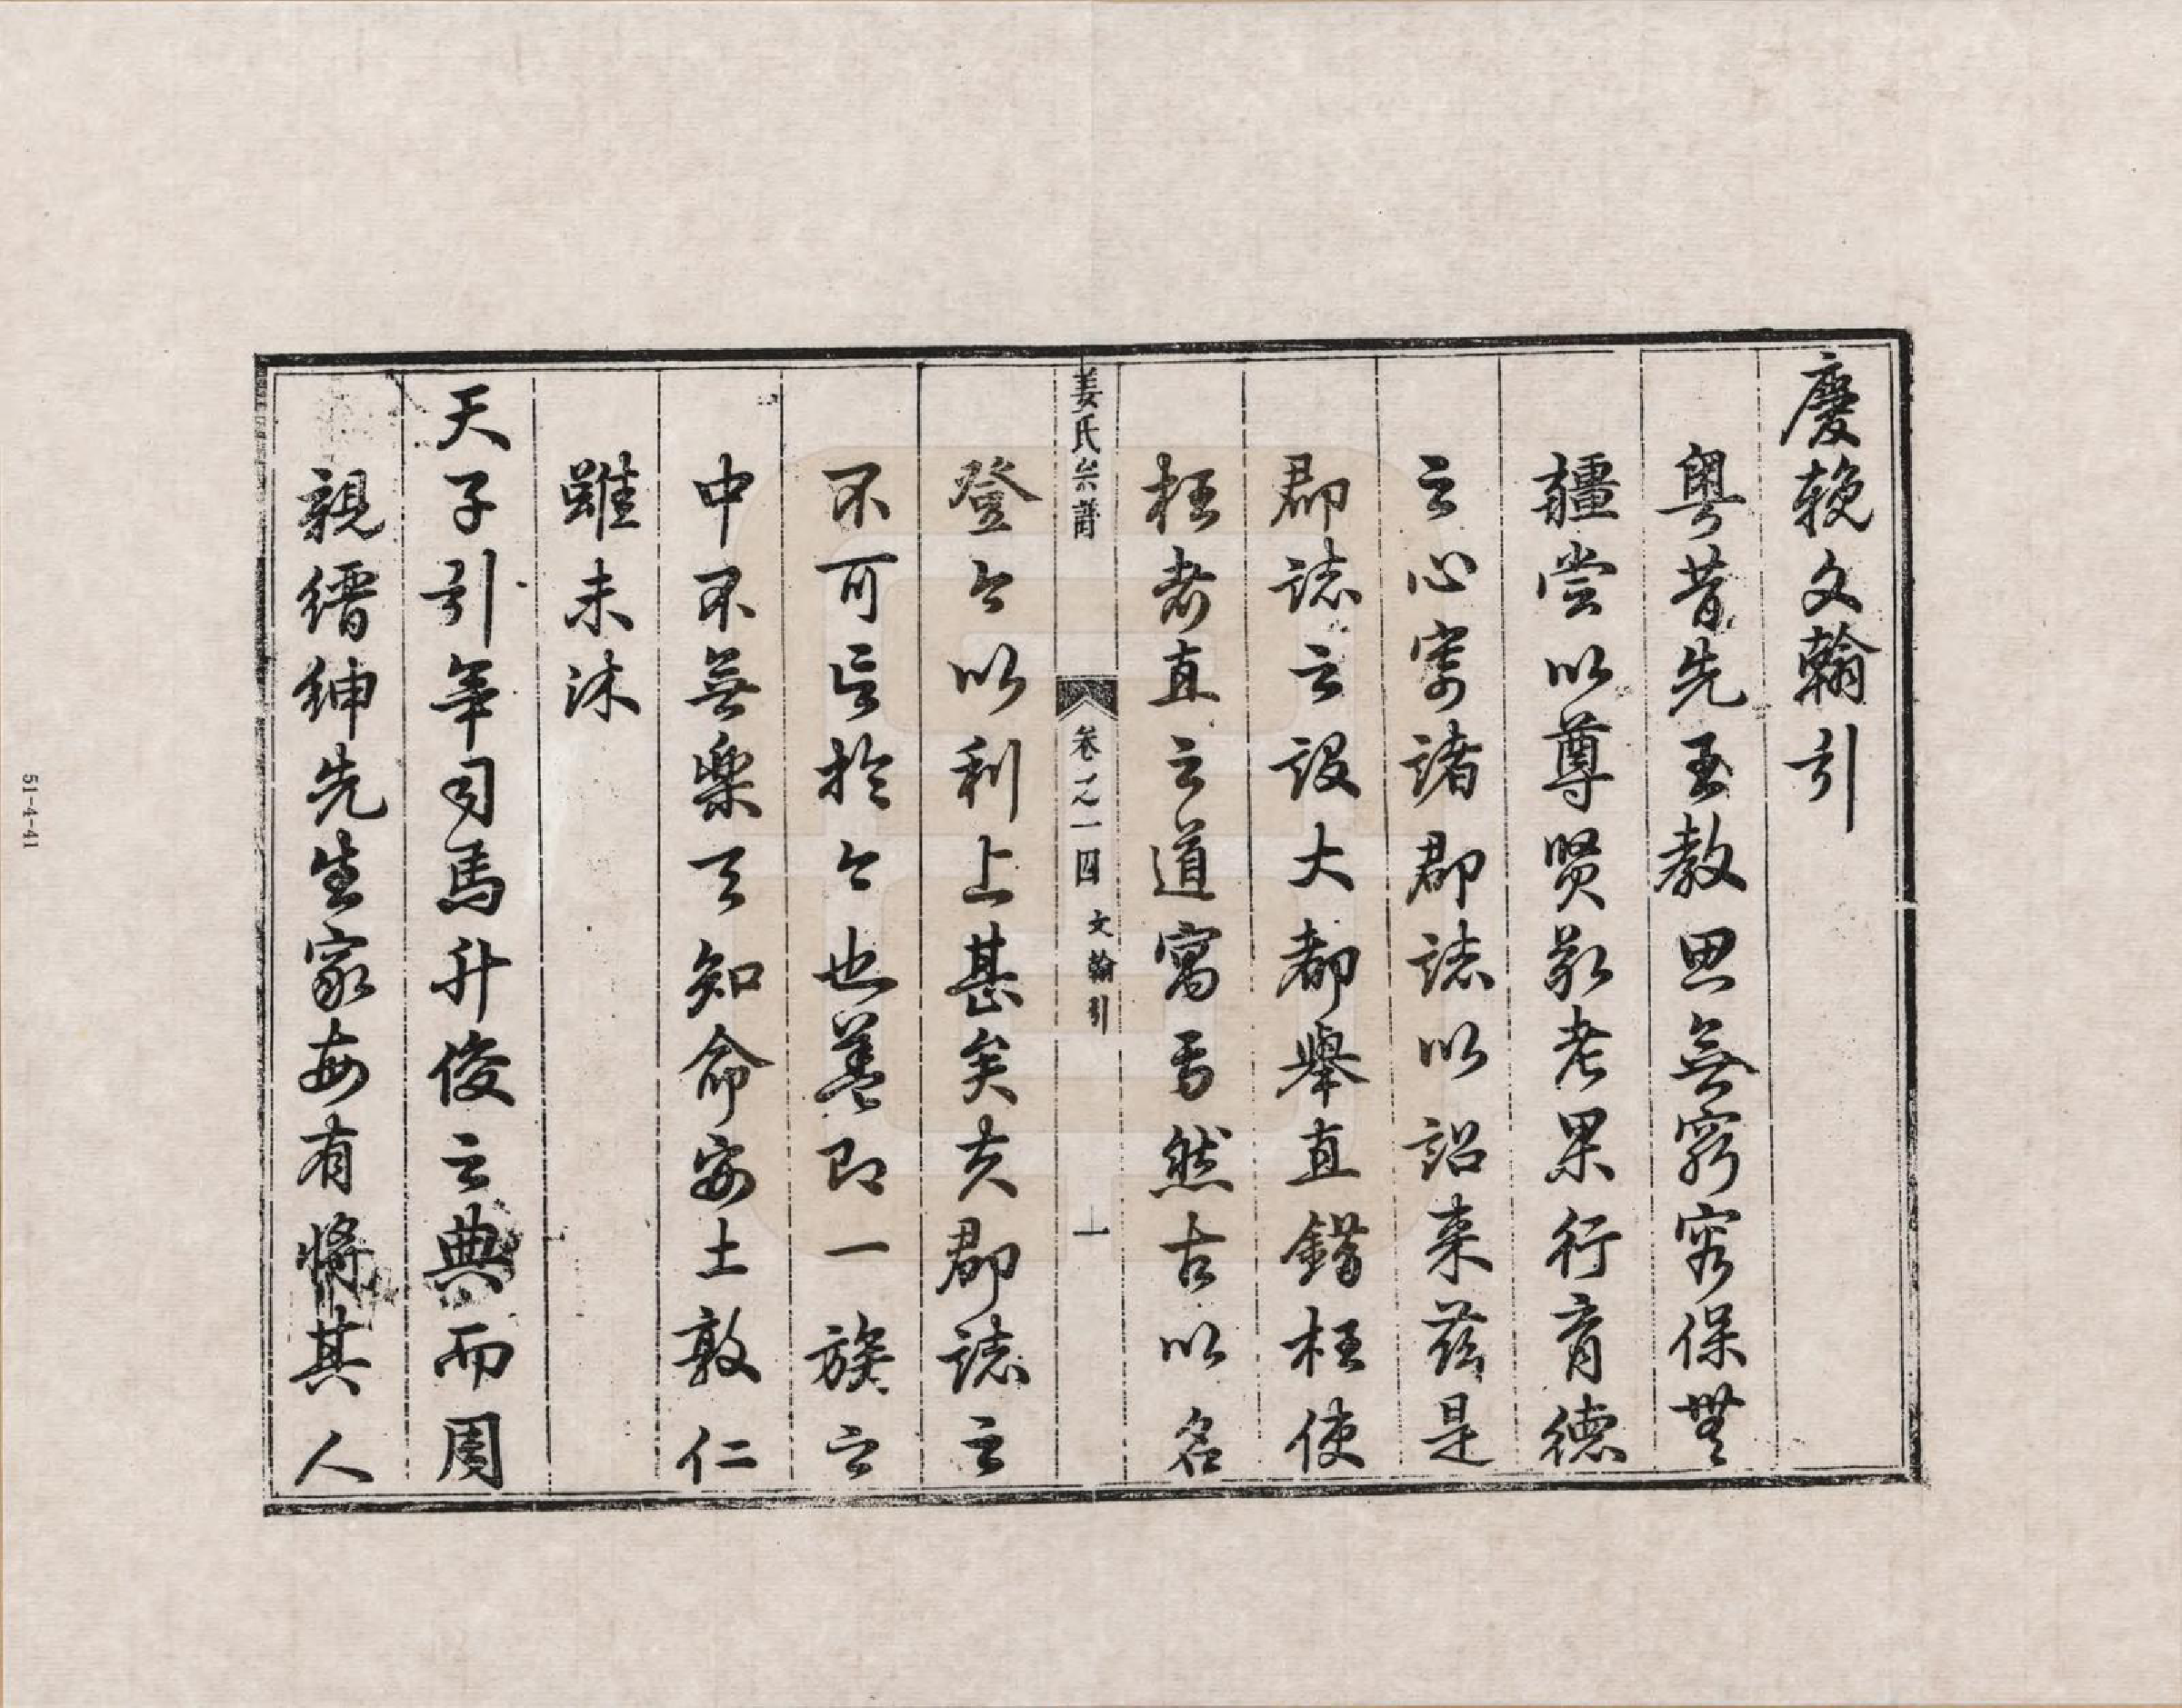 慶輓文翰引
粵昔先王教思無窮容保無
疆嘗以尊賢敬老果行育德
之心寄諸郡誌以詔来茲是
郡誌之設大都舉直錯枉使
枉者直之道寓焉然古以名
登今以利上甚矣夫郡誌之
不可信於今也蓋即一族之
中不無樂天知命安土敦仁
雖未沐
天子引年司馬升俊之典而周
親縉紳先生家每有將其人
姜氏宗譜
卷之一四 文翰引
一
51-4-41